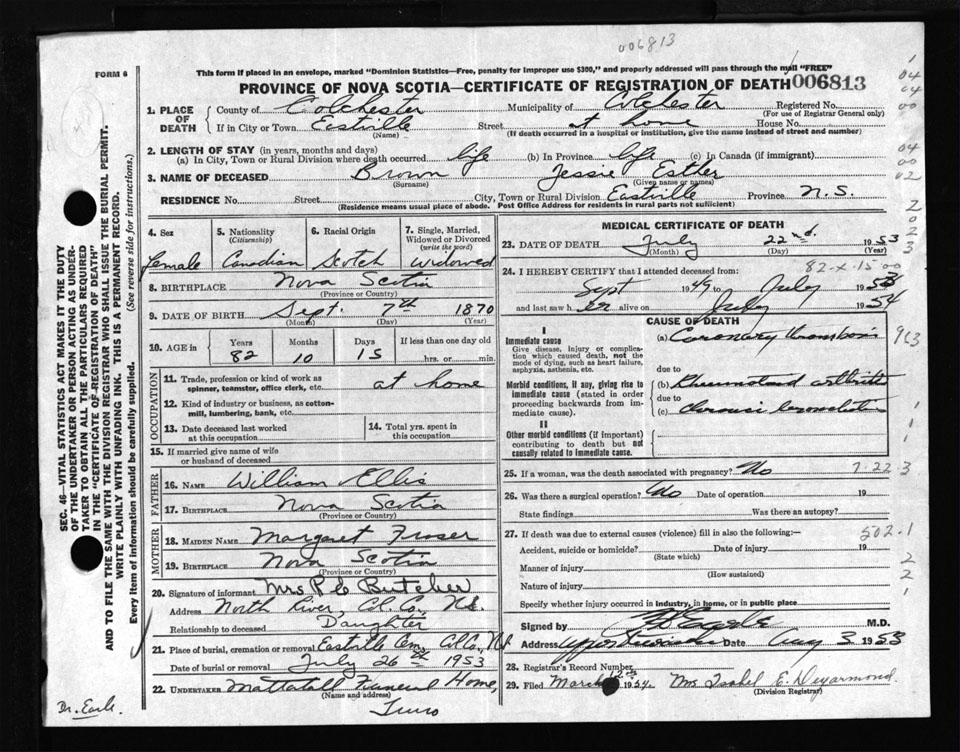 006813
FORM 6
This form if placed in an envelope, marked "Dominion Statistics—Free, penalty for improper use $300," and properly addressed will pass through the mail "FREE"
PROVINCE OF NOVA SCOTIA—CERTIFICATE OF REGISTRATION OF DEATH 006813
1. PLACE OF DEATH County of Colchester Municipality of Colchester Registered No.
(For use of Registrar General only)
If in City or Town Eastville Street at home House No.
(Name) (If death occurred in a hospital or institution, give the name instead of street and number)
2. LENGTH OF STAY (in years, months and days)
(a) In City, Town or Rural Division where death occurred life (b) In Province life (c) In Canada (if immigrant)
3. NAME OF DECEASED Brown Jessie Esther
(Surname) (Given name or names)
RESIDENCE No. Street City, Town or Rural Division Eastville Province N.S.
(Residence means usual place of abode. Post Office Address for residents in rural parts not sufficient)
4. Sex female
5. Nationality (Citizenship) Canadian
6. Racial Origin Scotch
7. Single, Married, Widowed or Divorced (write the word) Widowed
8. BIRTHPLACE Nova Scotia
(Province or Country)
9. DATE OF BIRTH Sept. 7th 1870
(Month) (Day) (Year)
10. AGE in Years Months Days If less than one day old
82 10 15 hrs. or min.
OCCUPATION
11. Trade, profession or kind of work as spinner, teamster, office clerk, etc. at home
12. Kind of industry or business, as cotton-mill, lumbering, bank, etc.
13. Date deceased last worked at this occupation
14. Total yrs. spent in this occupation
15. If married give name of wife or husband of deceased
FATHER
16. NAME William Ellis
17. BIRTHPLACE Nova Scotia
(Province or Country)
MOTHER
18. MAIDEN NAME Margaret Fraser
19. BIRTHPLACE Nova Scotia
(Province or Country)
20. Signature of informant Mrs P C Butcher
Address North River, Col. Co., N.S.
Relationship to deceased Daughter
21. Place of burial, cremation or removal Eastville Cem, Col Co., N.S
Date of burial or removal July 26th 1953
22. UNDERTAKER Mattatall Funeral Home,
(Name and address)
Truro
MEDICAL CERTIFICATE OF DEATH
23. DATE OF DEATH July 22nd. 1953
(Month) (Day) (Year)
82-x-15
24. I HEREBY CERTIFY that I attended deceased from:
Sept 1949 to July 1953
and last saw her alive on July 1954
CAUSE OF DEATH
I
Immediate cause
Give disease, injury or complication which caused death, not the mode of dying, such as heart failure, asphyxia, asthenia, etc.
(a) Coronary thrombosis
due to
Morbid conditions, if any, giving rise to immediate cause (stated in order proceeding backwards from immediate cause).
(b) Rheumatoid arthritis
due to
(c)
II
Other morbid conditions (if important) contributing to death but not causally related to immediate cause.
25. If a woman, was the death associated with pregnancy? No 7-22 3
26. Was there a surgical operation? No Date of operation 19
State findings Was there an autopsy?
27. If death was due to external causes (violence) fill in also the following: 502.1
Accident, suicide or homicide? Date of injury 19
(State which)
Manner of injury
(How sustained)
Nature of injury
Specify whether injury occurred in industry, in home, or in public place
Signed by Earle M.D.
Address Date Aug 3 1953
28. Registrar's Record Number
29. Filed March 12th 1954. Mrs Isabel E. Deyarmond
(Division Registrar)
SEC. 46—VITAL STATISTICS ACT MAKES IT THE DUTY
OF THE UNDERTAKER OR PERSON ACTING AS UNDER-
TAKER TO OBTAIN ALL THE PARTICULARS REQUIRED
IN THE "CERTIFICATE OF REGISTRATION OF DEATH"
AND TO FILE THE SAME WITH THE DIVISION REGISTRAR WHO SHALL ISSUE THE BURIAL PERMIT.
WRITE PLAINLY WITH UNFADING INK. THIS IS A PERMANENT RECORD.
Every item of information should be carefully supplied. (See reverse side for instructions.)
Dr. Earle.